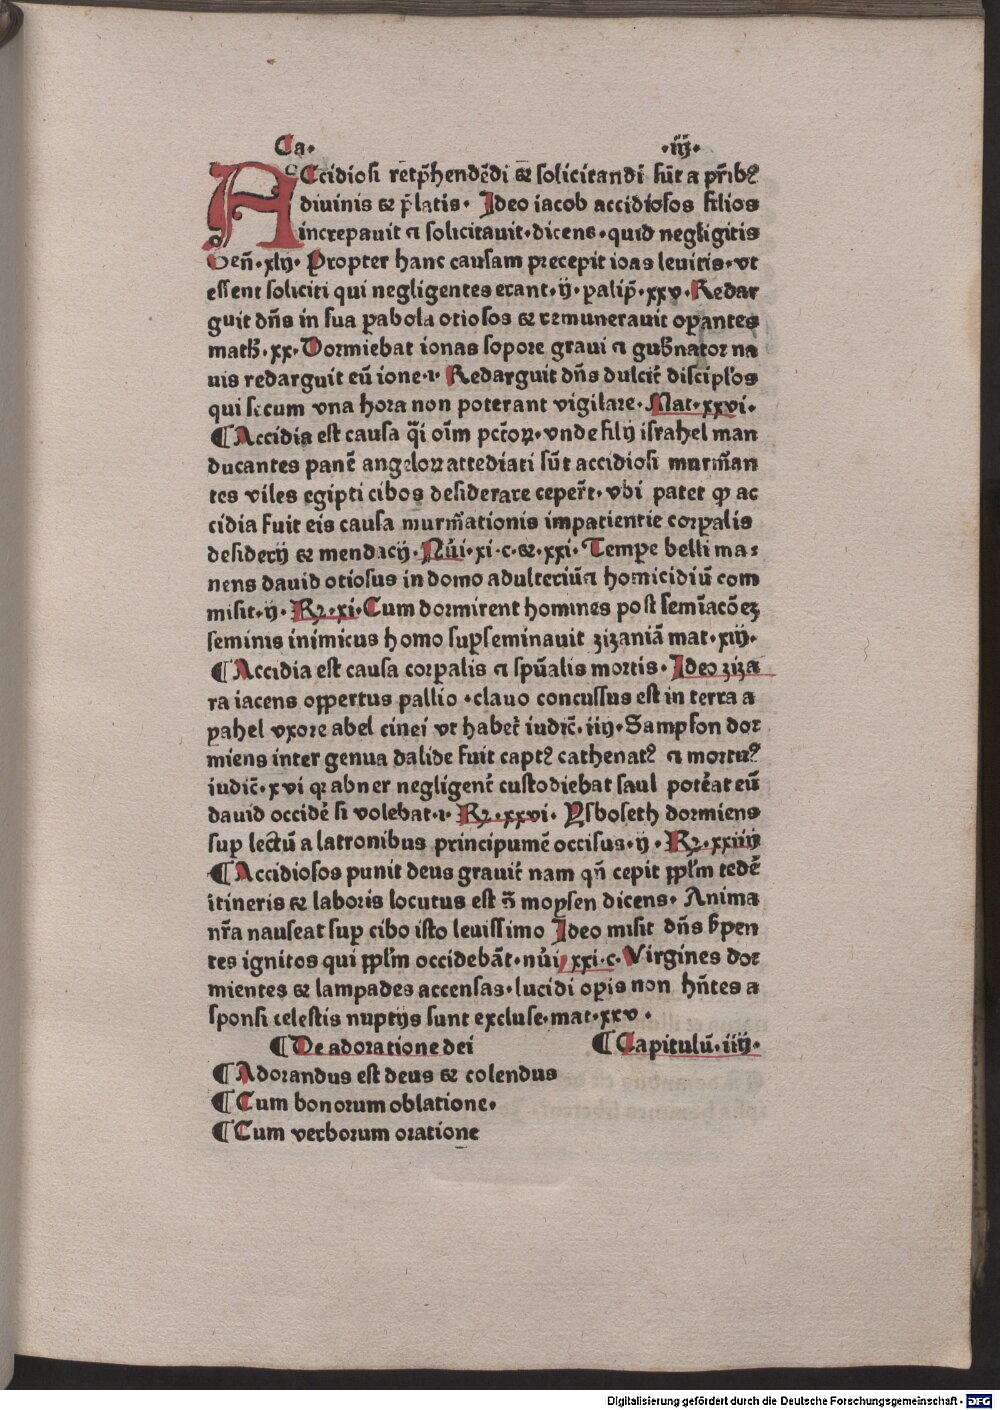 Ca. .iij.
ACcidiosi rep̄hendēdi ⁊ solicitandi sūt a p̄rib9
diuinis ⁊ p̄latis. Ideo iacob accidiosos filios
increpauit ⁊ solicitauit.dicens.quid negligitis
Geñ.xlij. Propter hanc causam precepit ioas leuitis.vt
essent soliciti qui negligentes erant.ij.palip̄.xxv.Redar
guit dñs in sua pabola otiosos ⁊ remunerauit opantes
math̄.xx.Dormiebat ionas sopore graui ⁊ gub̄nator na
uis redarguit eū ione.i. Redarguit dñs dulcit̄ discipl'os
qui secum vna hora non poterant vigilare.Mat.xxvi.
¶Accidia est causa q̄i oīm pctōꝝ.vnde filij israhel man
ducantes panē angeloꝝ attediati sūt accidiosi murm̄an
tes viles egipti cibos desiderare ceper̄t.vbi patet ꝙ ac
cidia fuit eis causa murm̄ationis impatientie corpalis
desiderij ⁊ mendacij.Nūi.xi.c.⁊.xxi.Tempe belli ma-
nens dauid otiosus in domo adulteriū⁊ homicidiū com
misit.ij.Rꝫ.xi.Cum dormirent homines post semīacōeꝫ
seminis inimicus homo supseminauit zizaniā mat.xiij.
¶Accidia est causa corpalis ⁊ spūalis mortis.Ideo ziza
ra iacens oppertus pallio .clauo concussus est in terra a
pahel vxore abel cinei vt habet̄ iudic̄.iiij.Sampson dor
miens inter genua dalide fuit capt9 cathenat9 ⁊ mortu9
iudic̄.xvi qꝛ abner negligent̄ custodiebat saul potēat eū
dauid occidē si volebat.i. Rꝫ.xxvi. Ysboseth dormiens
sup lectū a latronibus principumē occisus.ij.Rꝫ.xxiiij
¶Accidiosos punit deus grauit̄ nam qñ cepit ppl'm tedē
itineris ⁊ laboris locutus est 9̄ moysen dicens. Anima
nr̄a nauseat sup cibo isto leuissimo Ideo misit dñs s̄pen
tes ignitos qui ppl'm occidebāt.nūi xxi.c.Virgines dor
mientes ⁊ lampades accensas.lucidi opis non hn̄tes a
sponsi celestis nuptijs sunt excluse.mat.xxv.
¶De adoratione dei ¶Capitulū.iiij.
¶Adorandus est deus ⁊ colendus
¶Cum bonorum oblatione.
¶Cum verborum oratione
Digitalisierung gefördert durch die Deutsche Forschungsgemeinschaft - DFG